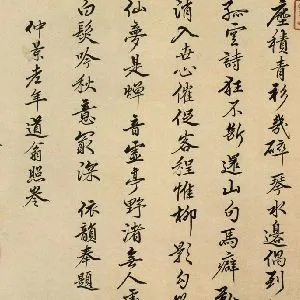 塵積青衫幾碎琴水邊偶到
詩狂不斷還山句馬癖
消入世心催促客程惟柳影勾
仙夢是蟬音虛亭野渚無人
白髮吟秋意冣深 依韻奉題
仲景老年道翁照